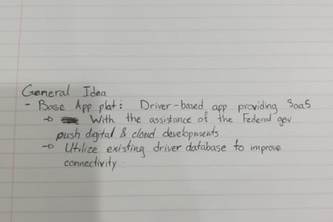 General Idea
- Base App plat: Driver-based app providing SaaS
→ With the assistance of the Federal gov
push digital & cloud developments
→ Utilize existing driver database to improve
connectivity